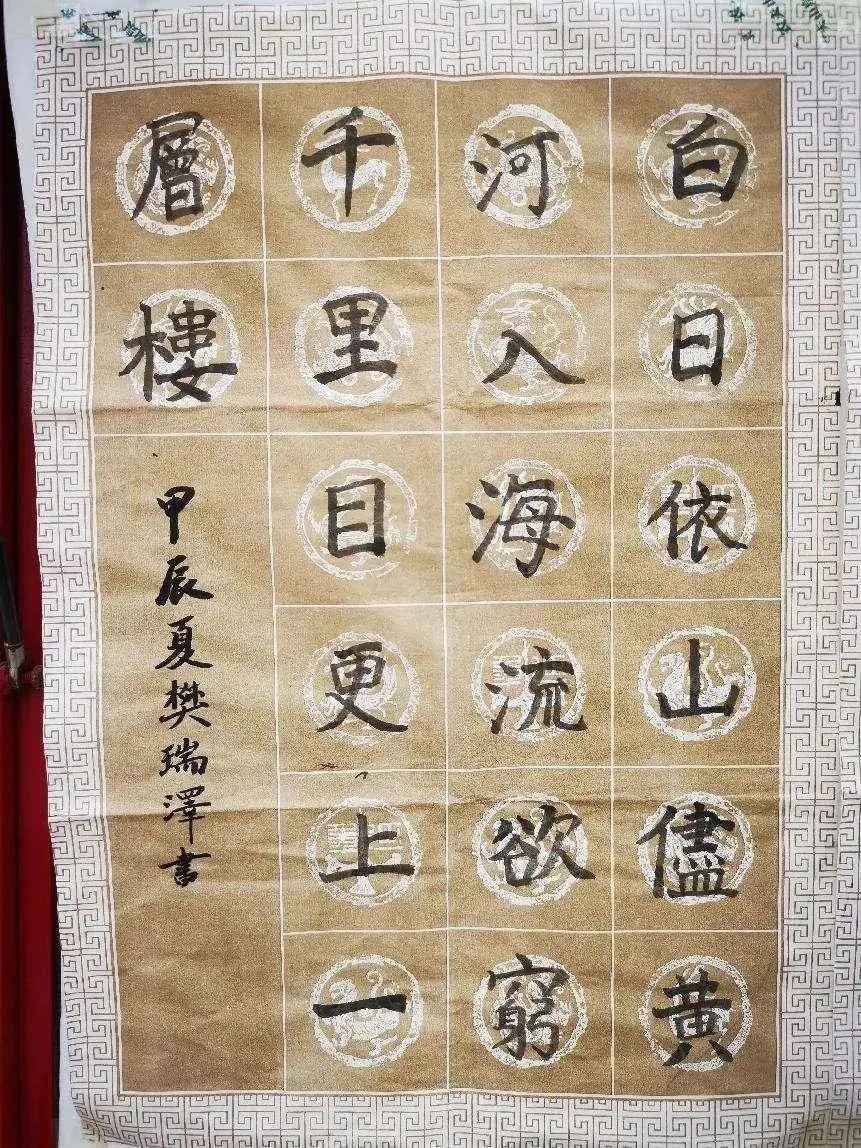 白日依山儘黃
河入海流欲窮
千里目更上一
層樓
甲辰夏樊瑞澤書